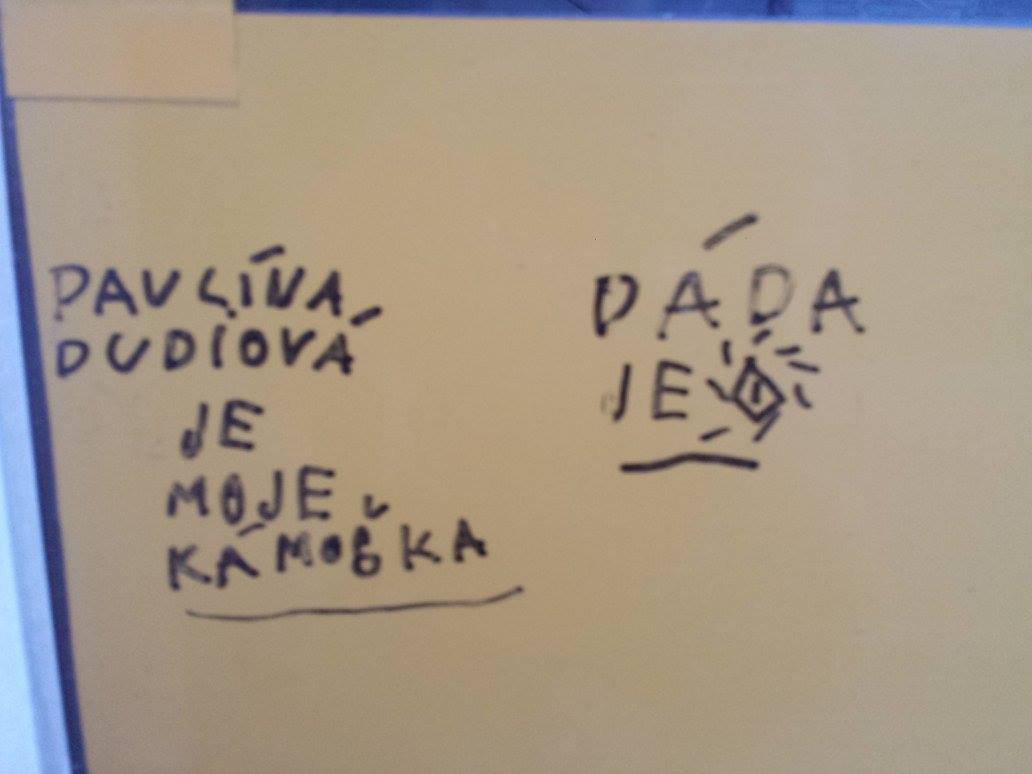 PAVLÍNA
DUDIOVÁ
JE
MOJE
KÁMOŠKA
PÁĎA
JE